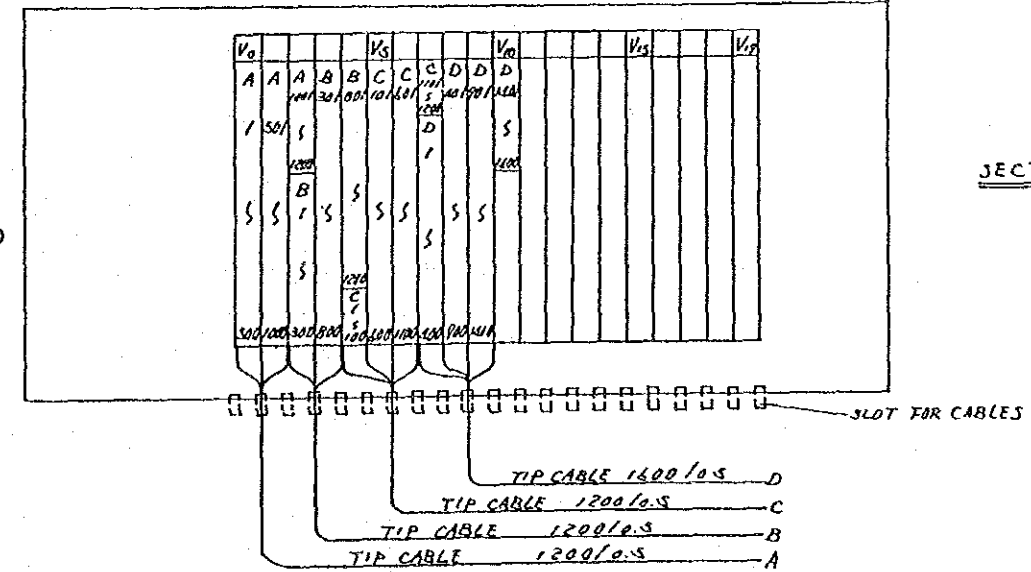 V0 V5 V10 V15 V19
A A A B B C C C D D D
1 501 1001 301 801 101 601 1101 401 901
1200
D
1
1200
B
1
1200
C
1
500 1000 300 800 100 600 1100 400 900
SLOT FOR CABLES
TIP CABLE 1600/0.5 D
TIP CABLE 1200/0.5 C
TIP CABLE 1200/0.5 B
TIP CABLE 1200/0.5 A
SECT